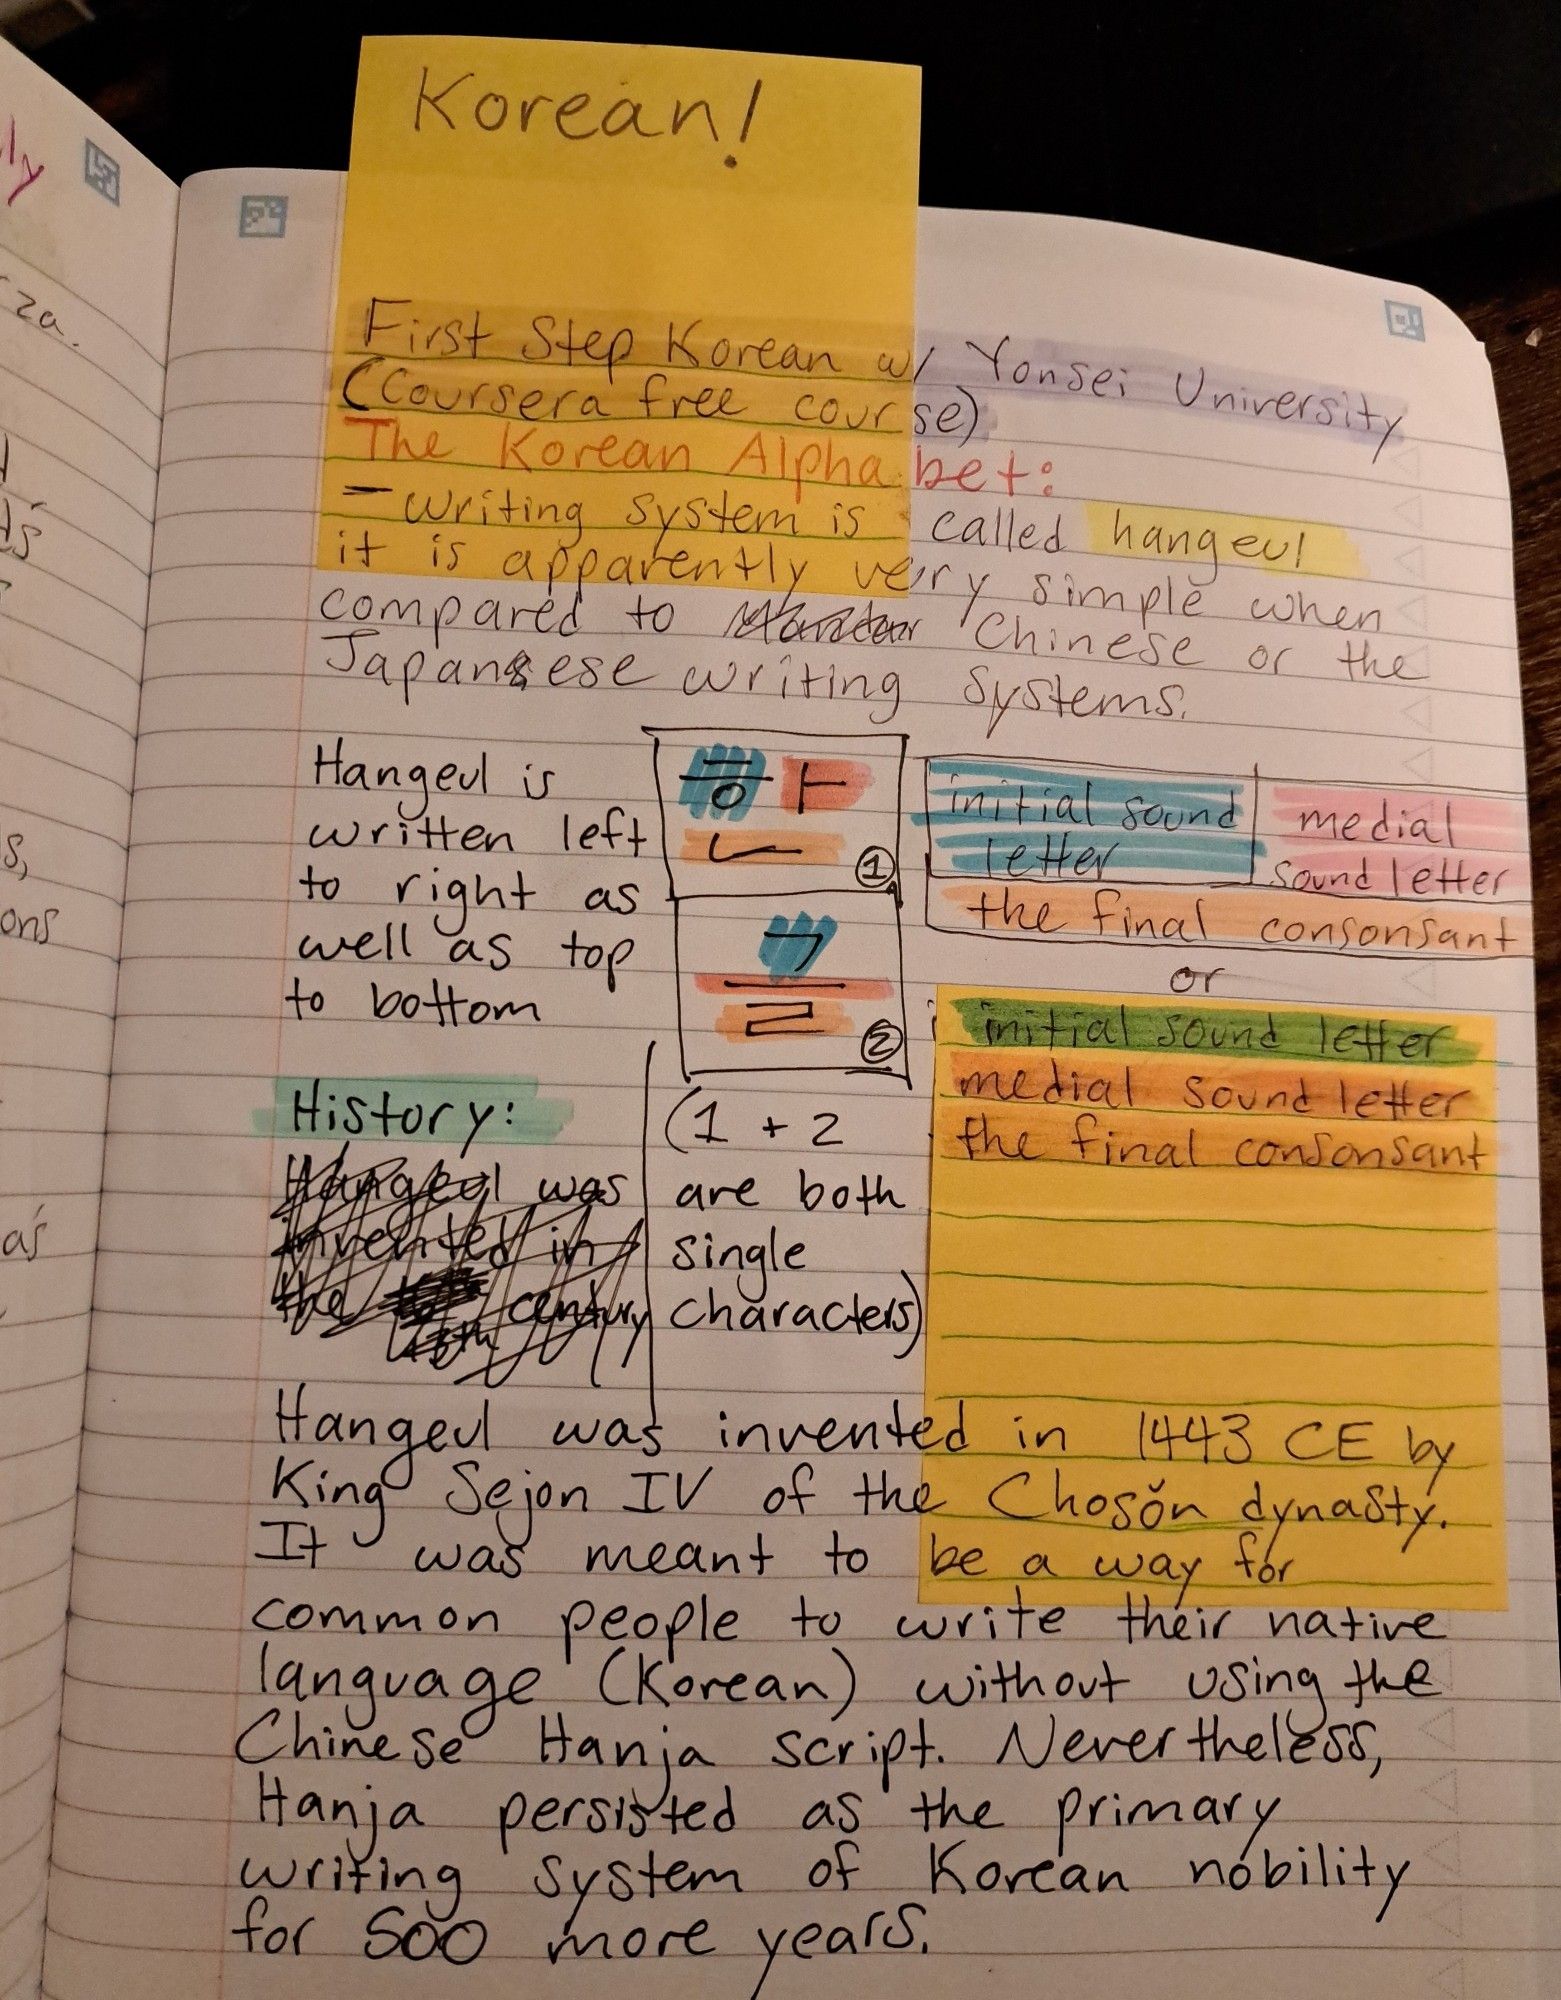 Korean!
First Step Korean w/ Yonsei University
(Coursera free course)
The Korean Alphabet:
- writing system is called hangeul
it is apparently very simple when
compared to Chinese or the
Japanese writing systems.
Hangeul is
written left
to right as
well as top
to bottom
한
1
글
2
initial sound
letter
medial
sound letter
the final consonsant
or
initial sound letter
medial sound letter
the final consonsant
(1 + 2
are both
single
characters)
History:
Hangeul was
invented in
the 15th century
Hangeul was invented in 1443 CE by
King Sejon IV of the Chosŏn dynasty.
It was meant to be a way for
common people to write their native
language (Korean) without using the
Chinese Hanja script. Nevertheless,
Hanja persisted as the primary
writing system of Korean nobility
for 500 more years.